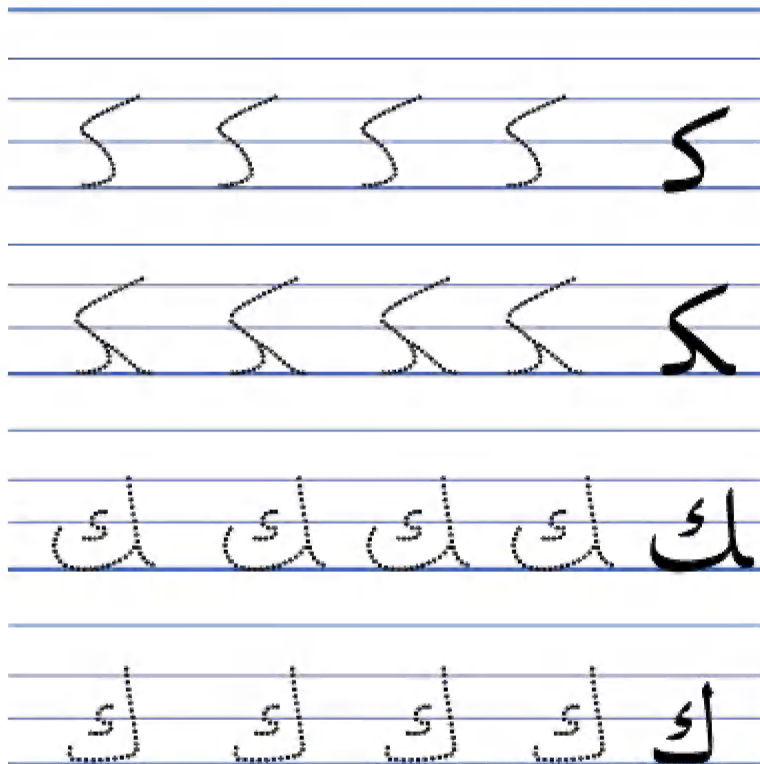 كـ كـ كـ كـ كـ
ـكـ ـكـ ـكـ ـكـ ـكـ
ـك ـك ـك ـك ـك
ك ك ك ك ك